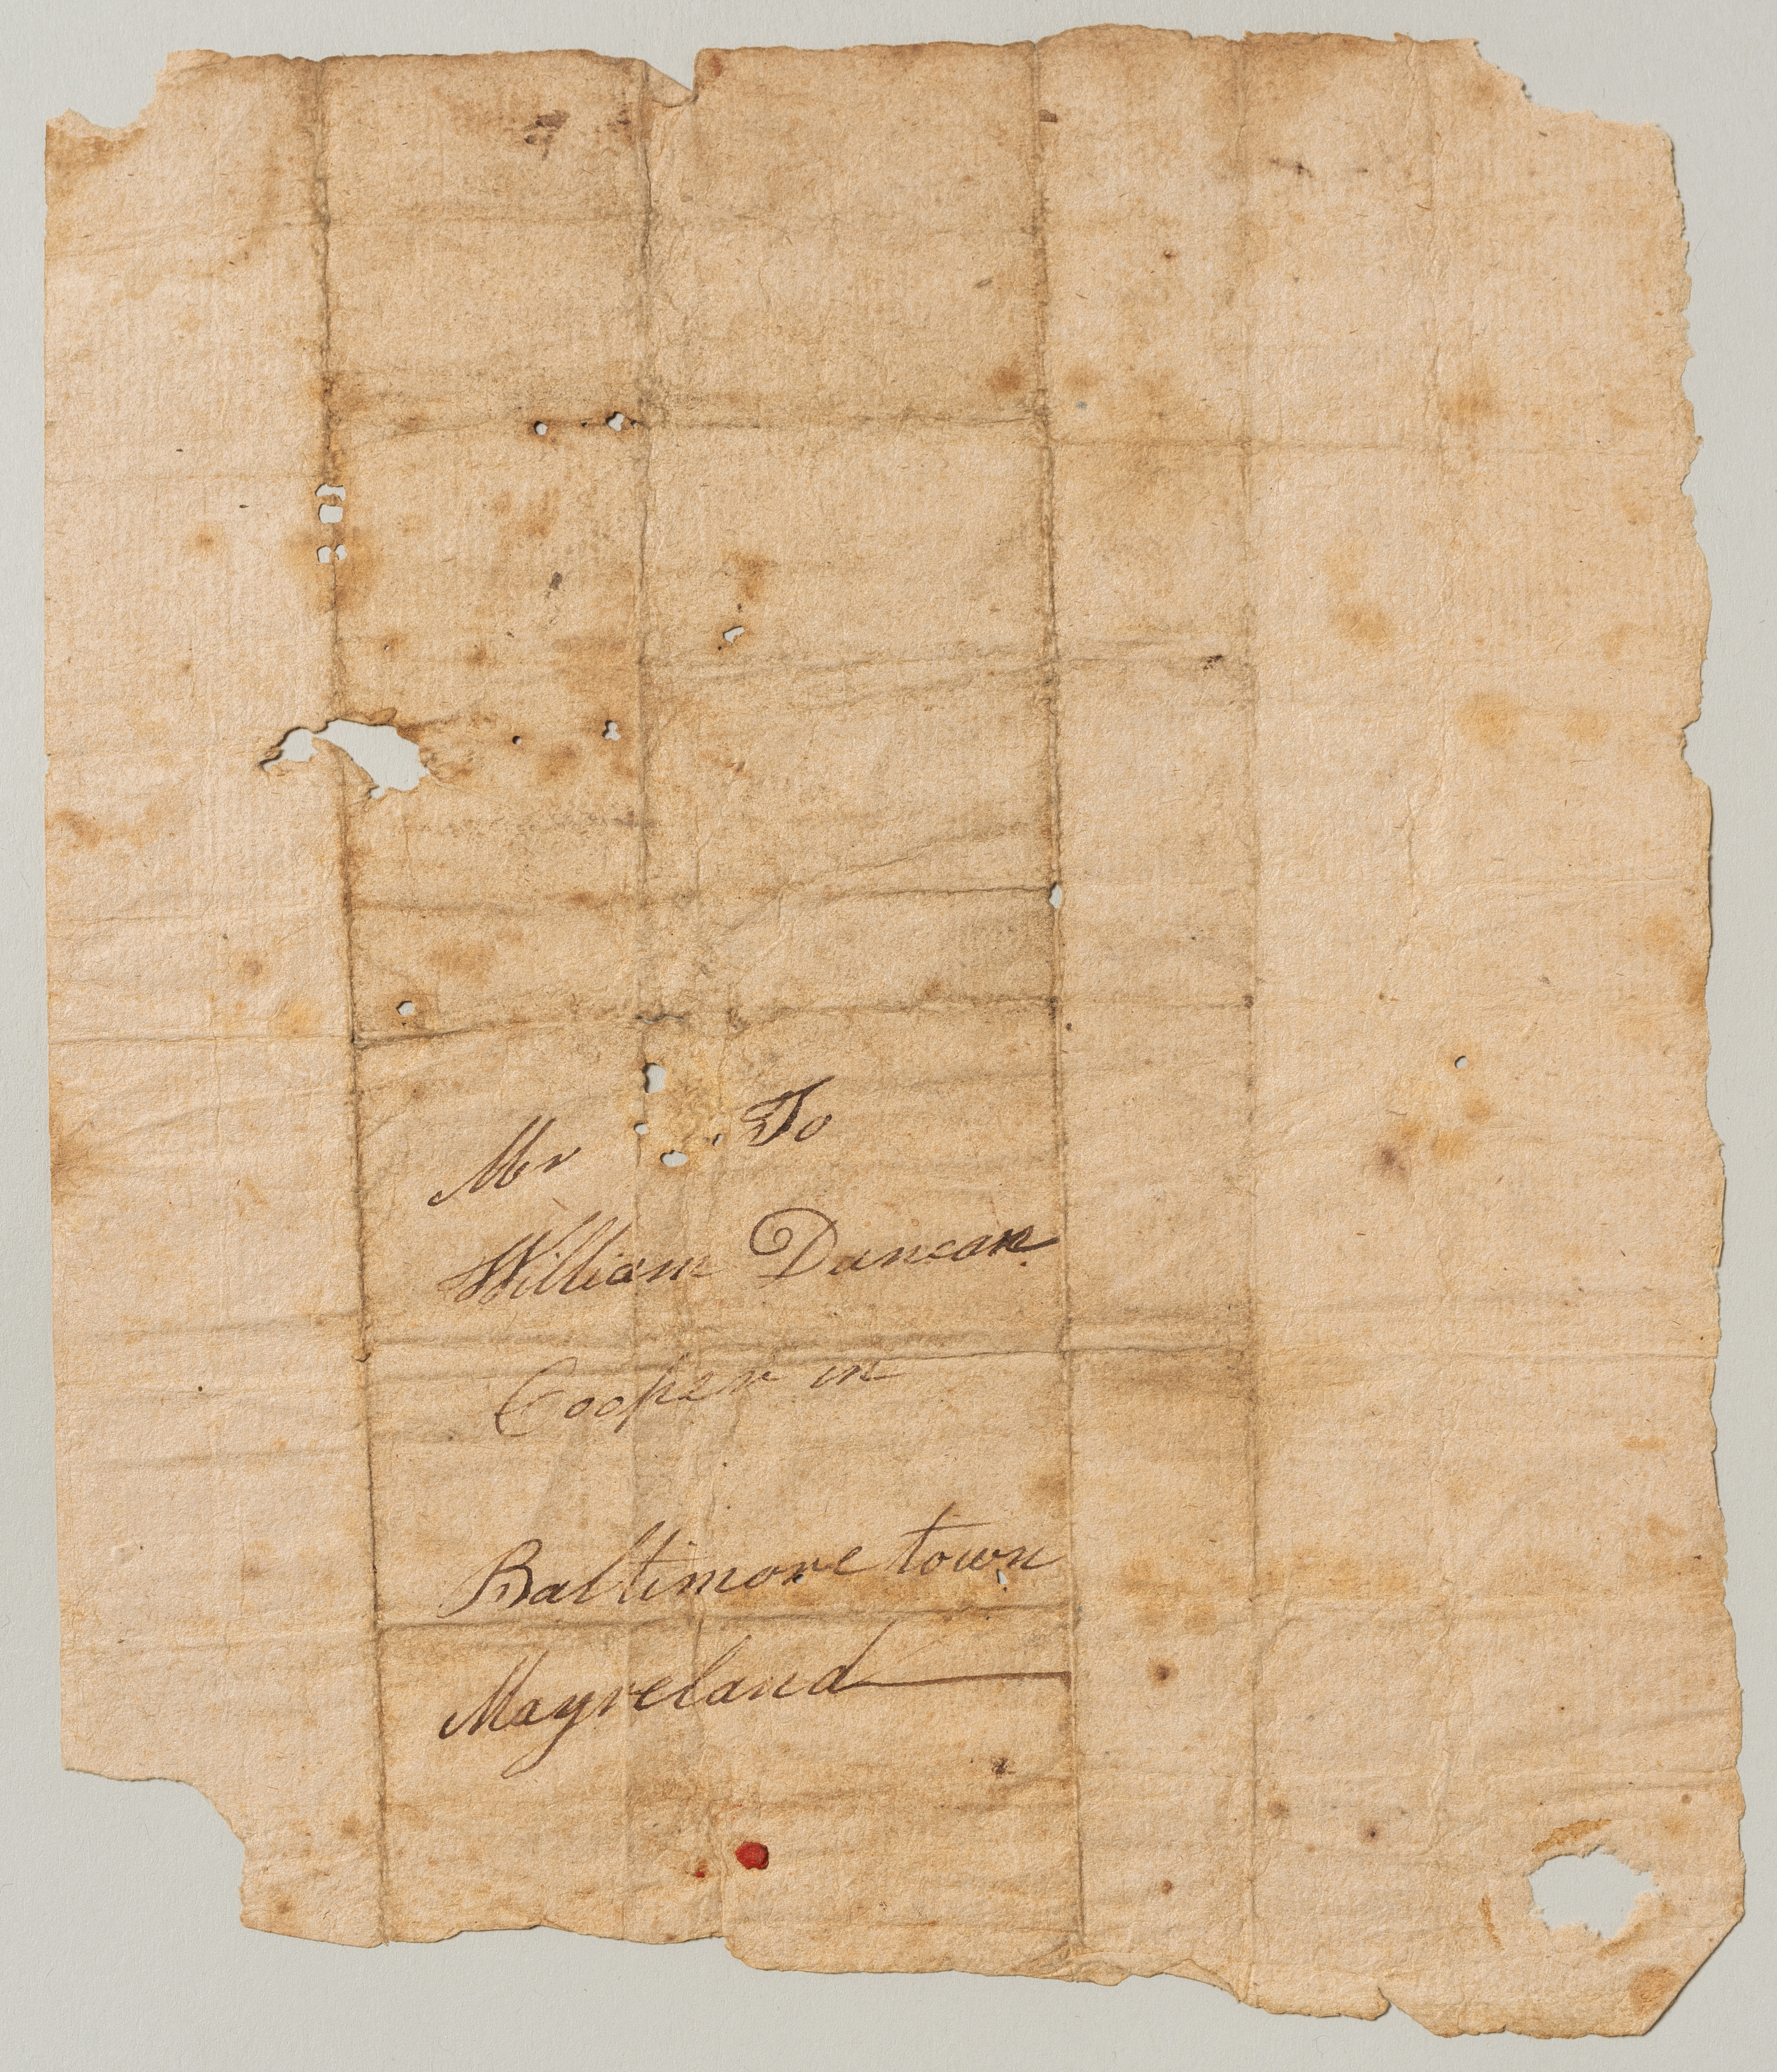 To
Mr
William Duncan
Cooper in
Baltimore town
Mayreland